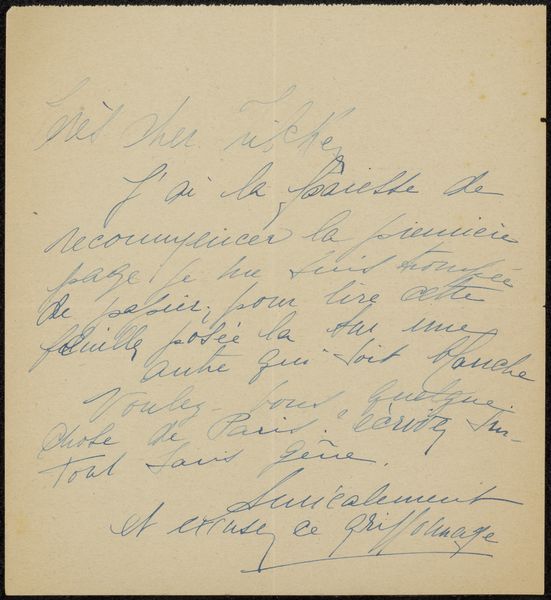 Très cher
J'ai la paresse de
recommencer la première
page je me suis trompée
de papier, pour lire cette
feuille posée la sur une
autre qui soit blanche
Voulez-vous quelque
chose de Paris. écrivez sur-
tout sans gêne.
Amicalement
et excusez ce griffonnage